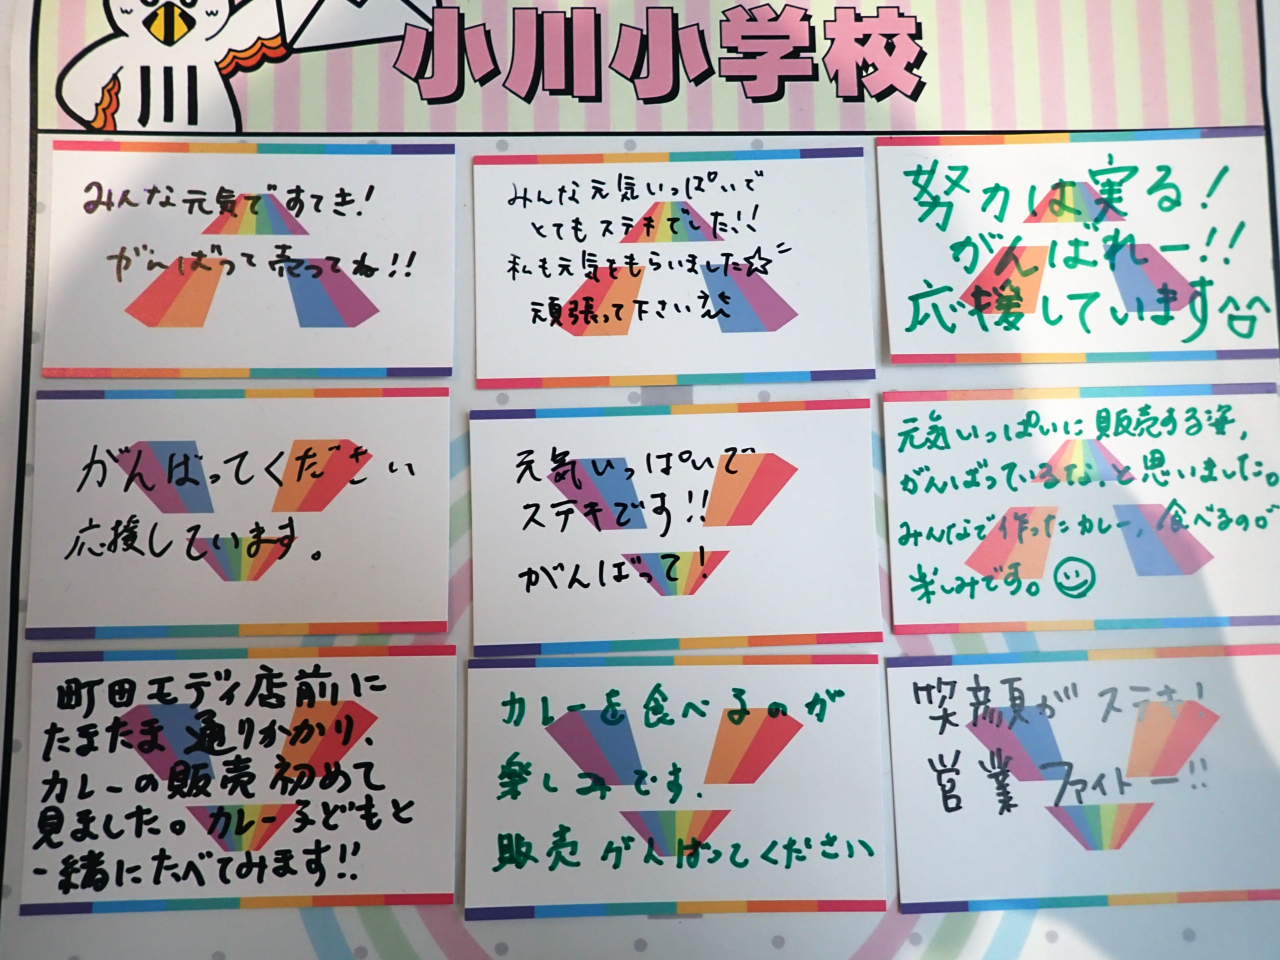 小川小学校
みんな元気ですてき!
がんばって売ってね!!
みんな元気いっぱいで
とてもステキでした!!
私も元気をもらいました☆
頑張って下さい
努力は実る!
がんばれー!!
応援しています^^
がんばってください
応援しています。
元気いっぱいで
ステキです!!
がんばって!
元気いっぱいに販売する姿,
がんばっているな,と思いました。
みんなで作ったカレー,食べるのが
楽しみです。
町田モディ店前に
たまたま通りかかり、
カレーの販売初めて
見ました。カレー子どもと
一緒にたべてみます!!
カレーを食べるのが
楽しみです.
販売がんばってください
笑顔がステキ!
営業ファイトー!!